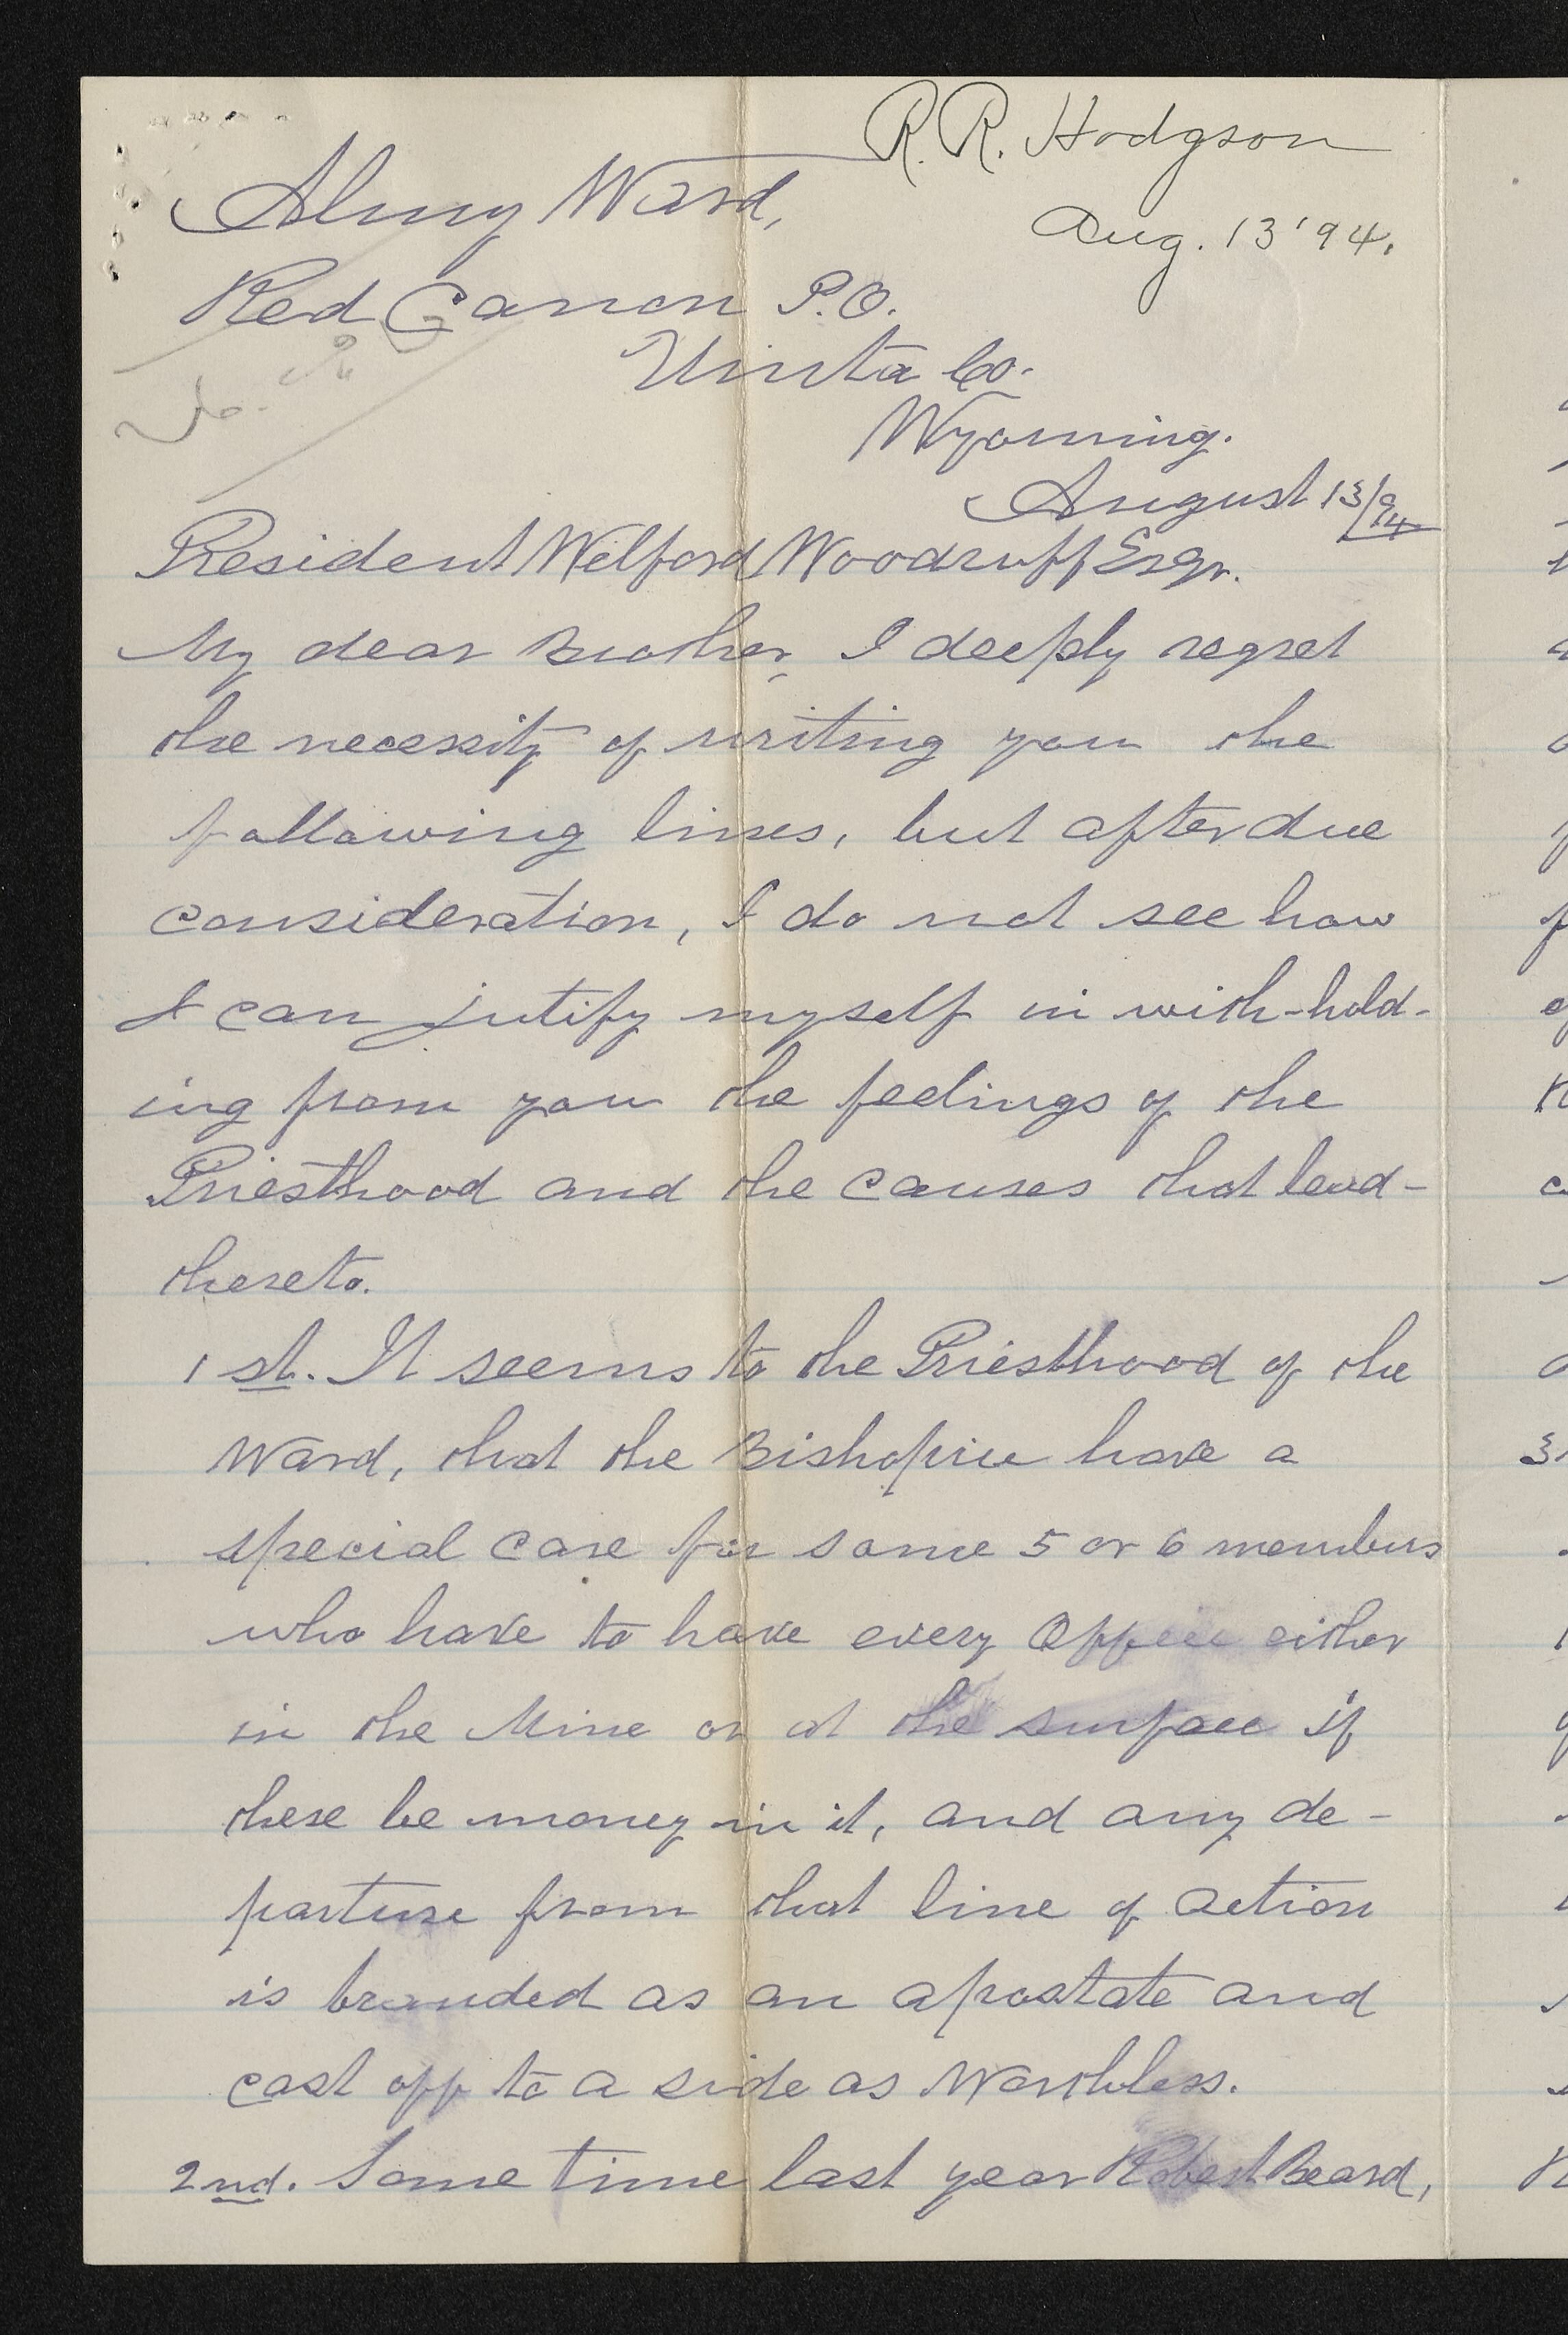 R. R. Hodgson
Aug. 13 '94.
Almy Ward,
Red Canon P.O.
Uinta Co.
Wyoming.
August 13/94
President Welford Woodruff Esqr.
My dear Brother, I deeply regret
the necessity of writing you the
following lines, but after due
consideration, I do not see how
I can jutify myself in with-hold-
ing from you the feelings of the
Priesthood and the causes that lead-
thereto.
1st. It seems to the Priesthood of the
Ward, that the Bishopric have a
special care for some 5 or 6 members
who have to have every Office either
in the Mine or at the surface if
there be money in it, and any de-
parture from that line of action
is branded as an apostate and
cast off to a side as Worthless.
2nd. Some time last year Robert Beard,